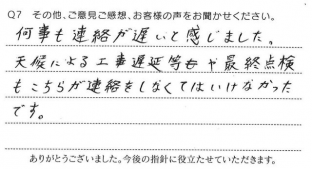 Q7 その他、ご意見ご感想、お客様の声をお聞かせください。
何事も連絡が遅いと感じました。
天候による工事遅延等もや最終点検
もこちらが連絡をしなくてはいけなかった
です。
ありがとうございました。今後の指針に役立たせていただきます。